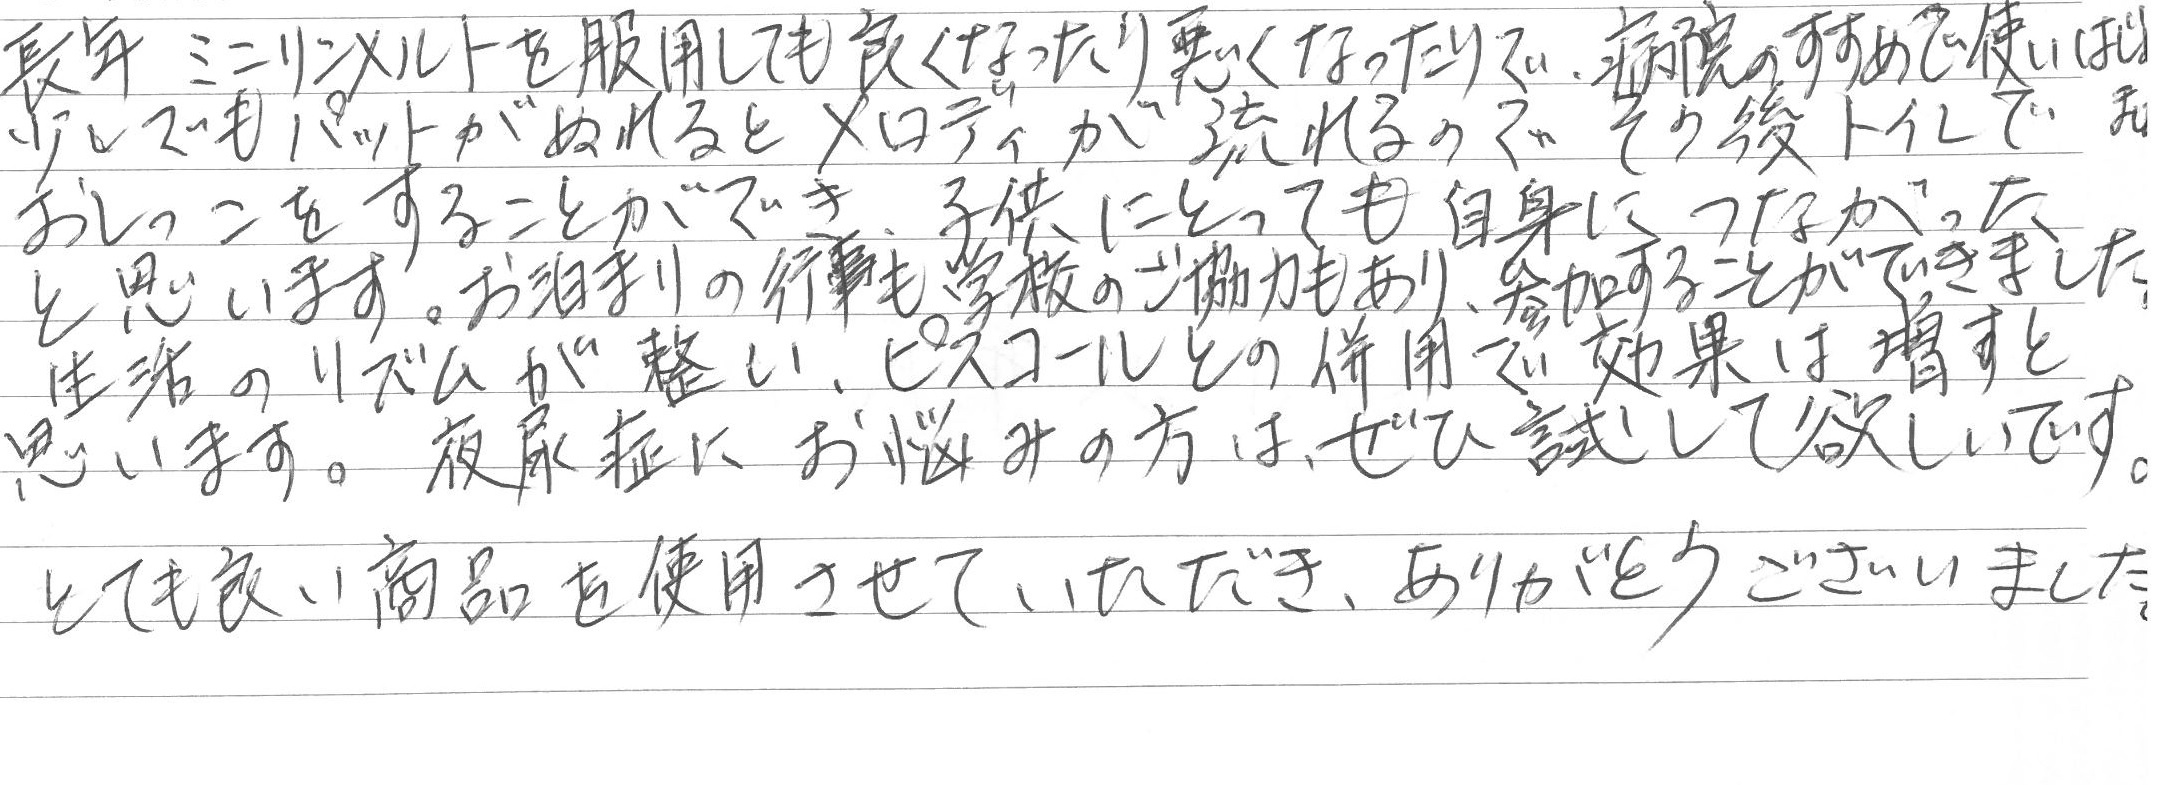 長年 ミニリンメルトを服用しても良くなったり悪くなったりで、病院のすすめで使いはじ
少しでもパットがぬれるとメロディが流れるので その後トイレで
おしっこをすることができ、子供にとっても自身につながった
と思います。お泊まりの行事も学校のご協力もあり、参加することができました。
生活のリズムが整い、ピスコールとの併用で効果は増すと
思います。夜尿症にお悩みの方は、ぜひ試して欲しいです。
とても良い商品を使用させていただき、ありがとうございました。